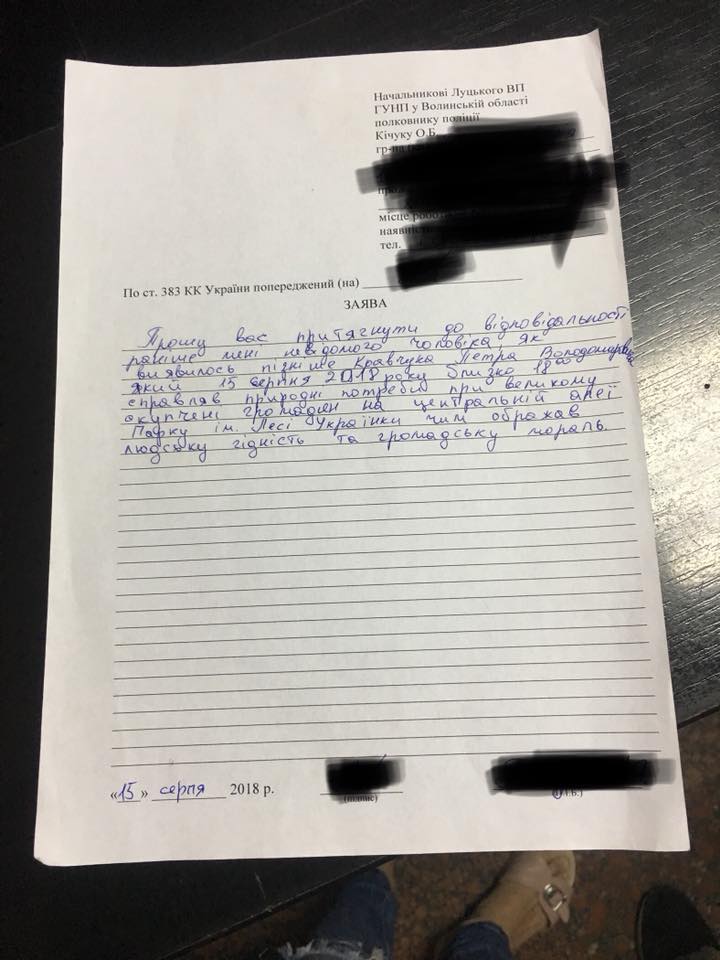 Начальникові Луцького ВП
ГУНП у Волинській області
полковнику поліції
Кічуку О.Б.
гр-на
місце
тел.
По ст. 383 КК України попереджений (на)
ЗАЯВА
Прошу вас притягнути до відповідальності
раніше мені невідомого чоловіка, як
виявилось пізніше Кравчука Петра Володимировича
який 15 серпня 2018 року близко 18⁰⁰
справляв природні потреби при великому
скупчені громадян на центральній алеї
Парку ім. Лесі Українки чим ображав
людську гідність та громадську мораль.
«15» серпя 2018 р.
(підпис)